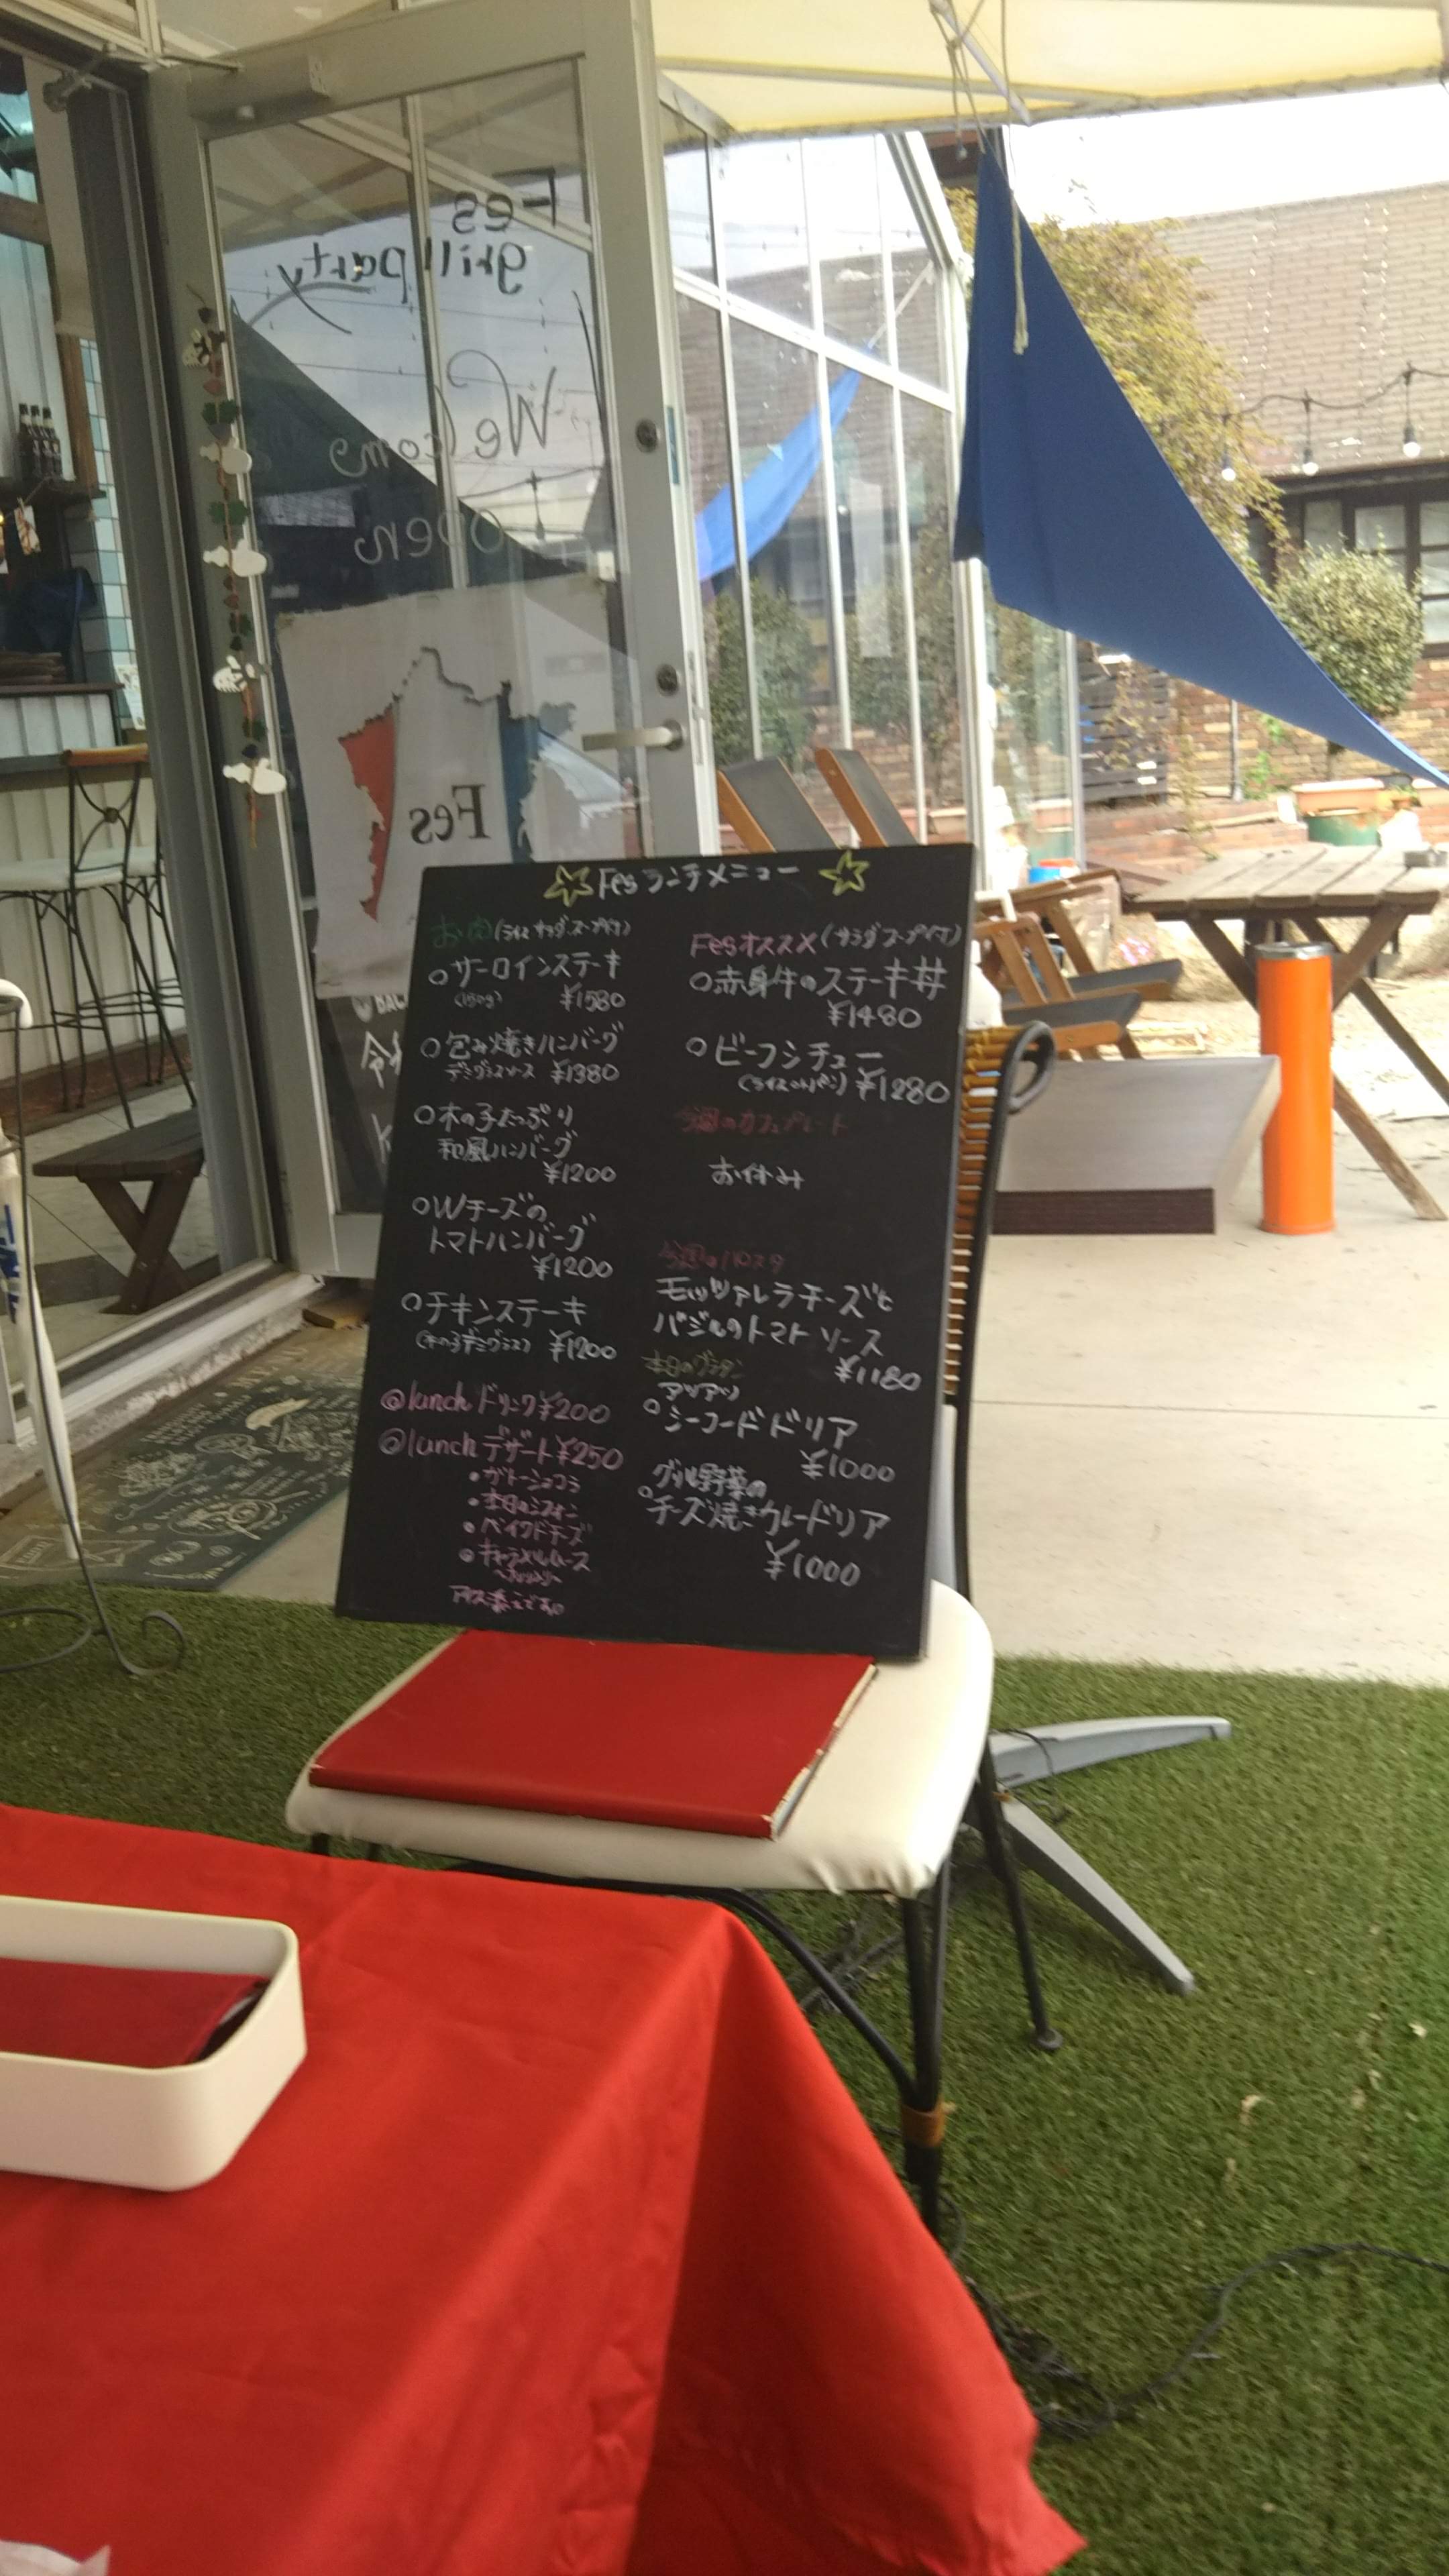 Fes
grill party
Welcome
open
Fes
☆Fesランチメニュー☆
お肉(ライスサラダ.スープ付)
○サーロインステーキ
(150g) ¥1580
○包み焼きハンバーグ
デミグラスソース ¥1380
○木の子たっぷり
和風ハンバーグ
¥1200
○Wチーズの
トマトハンバーグ
¥1200
○チキンステーキ
(木の子デミグラス) ¥1200
@lunch ドリンク¥200
@lunch デザート¥250
・ガトーショコラ
・本日のシフォン
・ベイクドチーズ
・キャラメルムース
アイス添えです
Fesオススメ(サラダスープ付)
○赤身牛のステーキ丼
¥1480
○ビーフシチュー
(ライスorパン) ¥1280
今週のカフェプレート
お休み
今週のパスタ
モッツァレラチーズと
バジルのトマトソース
¥1180
本日のグラタン
アツアツ
○シーフードドリア
¥1000
グリル野菜の
○チーズ焼きカレードリア
¥1000